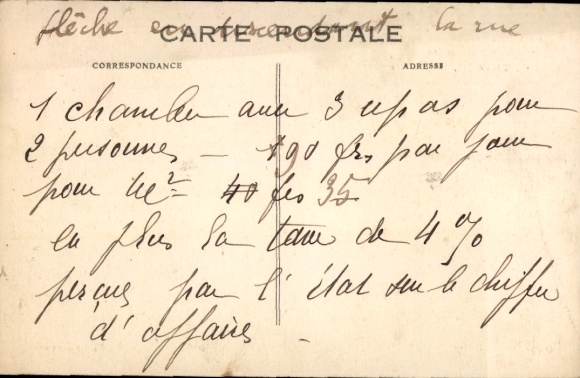 flèche en descendant la rue
CARTE POSTALE
CORRESPONDANCE
ADRESSE
1 chambre avec 3 repas pour
2 personnes — 190 frs par jour
pour 40 frs 35
en plus la taxe de 4%
perçue par l'état sur le chiffre
d'affaires -